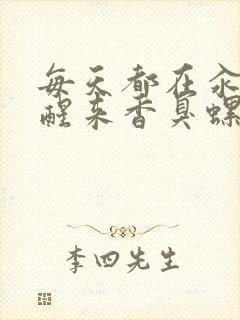 每天都在汆
醒来香臭螺
李四先生